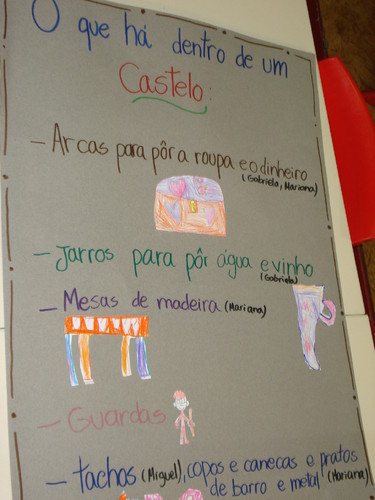 O que há dentro de um
Castelo:
- Arcas para pôr a roupa e o dinheiro
(Gabriela, Mariana)
- Jarros para pôr água e vinho
(Gabriela)
- Mesas de madeira (Mariana)
- Guardas
- tachos (Miguel), copos e canecas e pratos
de barro e metal (Mariana)